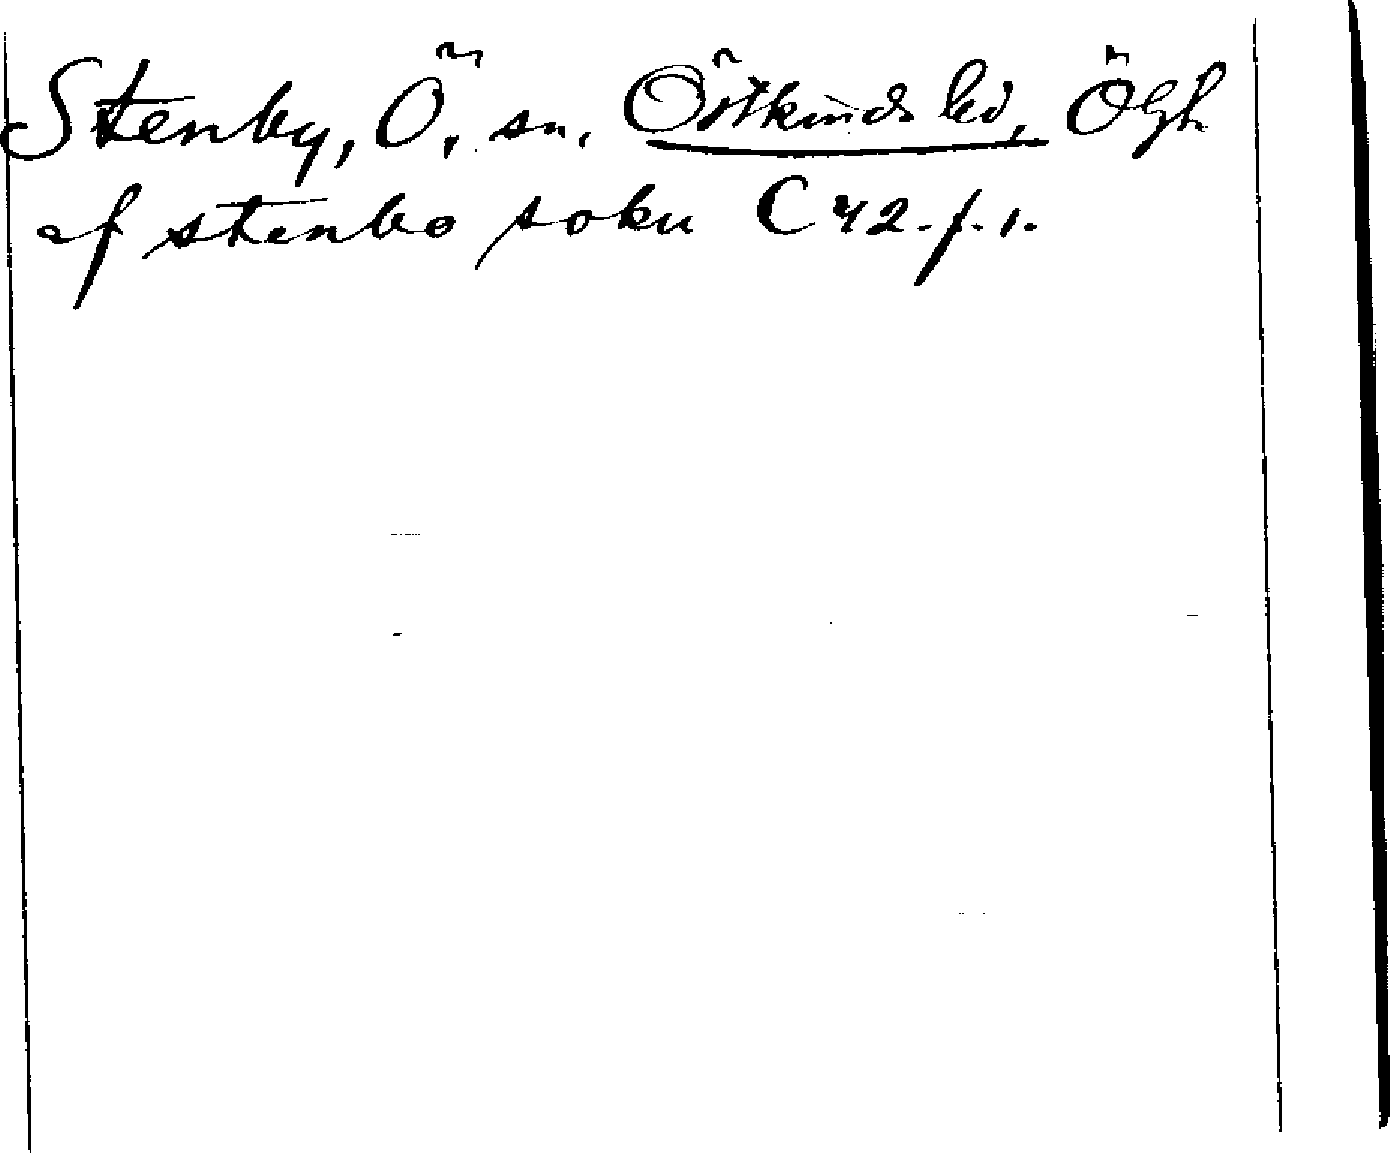 Stenby, Ö, sn, Östkinds hd, Ögl.
af stenbo sokn C 42. f. 1.